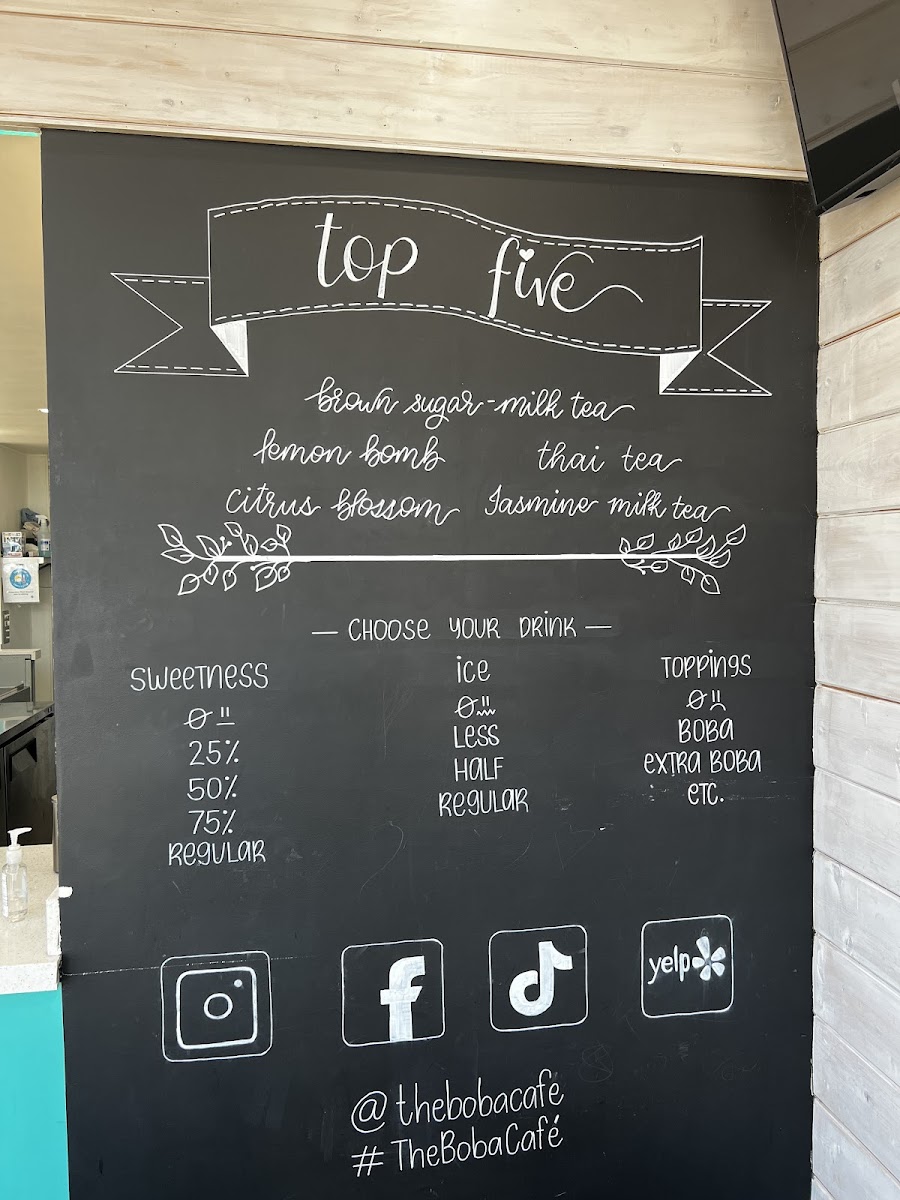 top five
brown sugar-milk tea
lemon bomb
thai tea
citrus blossom
Jasmine milk tea
— CHOOSE YOUR DRINK —
SWEETNESS
0
25%
50%
75%
REGULAR
ICE
0
LESS
HALF
REGULAR
TOPPINGS
0
BOBA
EXTRA BOBA
ETC.
f
yelp
@thebobacafé
#TheBobaCafé